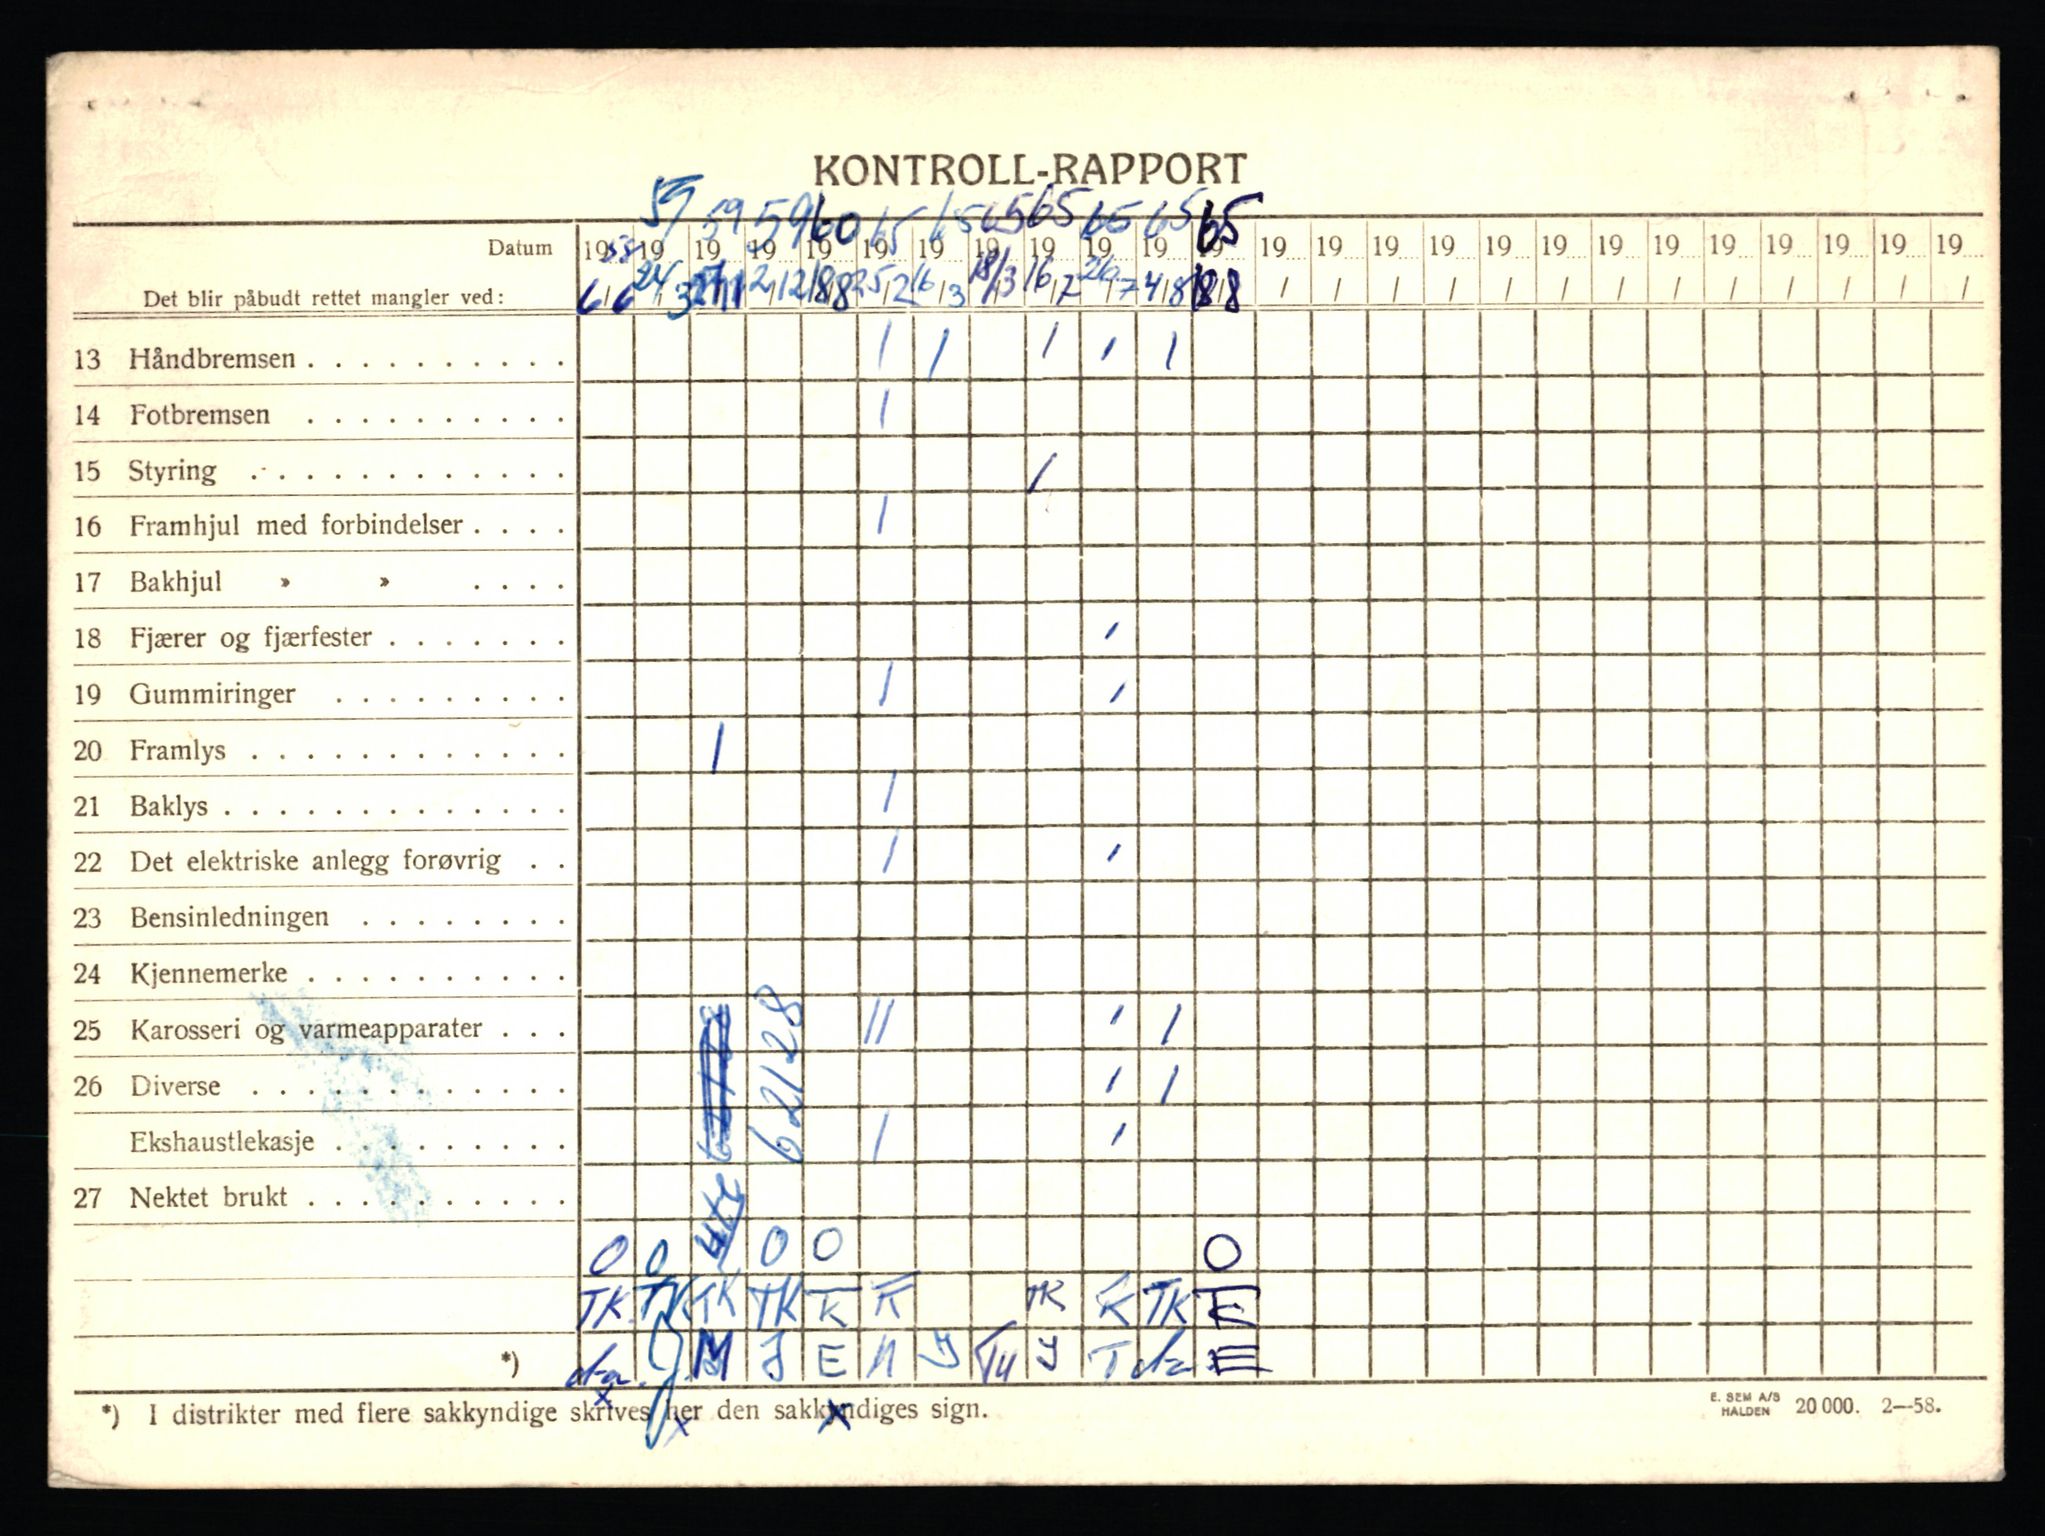 KONTROLL-RAPPORT
58 59 59 59 60 65 65 65 65 65 65 65
Datum 19 19 19 19 19 19 19 19 19 19 19 19 19 19 19 19 19 19 19 19 19 19 19 19 19
Det blir påbudt rettet mangler ved: 6/6 24/3 2/12 18/8 25/2 16/3 18/3 16/7 26/7 4/8 18/8 / / / / / / / / / / / / /
13 Håndbremsen . . . . . . . . . . 1 1 1 1 1
14 Fotbremsen . . . . . . . . . . 1
15 Styring . . . . . . . . . . . . 1
16 Framhjul med forbindelser . . . . 1
17 Bakhjul » » . . . .
18 Fjærer og fjærfester . . . . . . . 1
19 Gummiringer . . . . . . . . . 1 1
20 Framlys . . . . . . . . . . . . 1
21 Baklys . . . . . . . . . . . . . 1
22 Det elektriske anlegg forøvrig . . 1 1
23 Bensinledningen . . . . . . . .
24 Kjennemerke . . . . . . . . . .
25 Karosseri og varmeapparater . . . 11 1 1
62128
26 Diverse . . . . . . . . . . . . 1 1
Ekshaustlekasje . . . . . . . . . 1 1
27 Nektet brukt . . . . . . . . . .
0 0 0 0 0
TK TK TK TK K K TK K TK K
*) M J E N Y Tu Y T E
*) I distrikter med flere sakkyndige skrives her den sakkyndiges sign.
E. SEM A/S
HALDEN 20 000. 2—58.